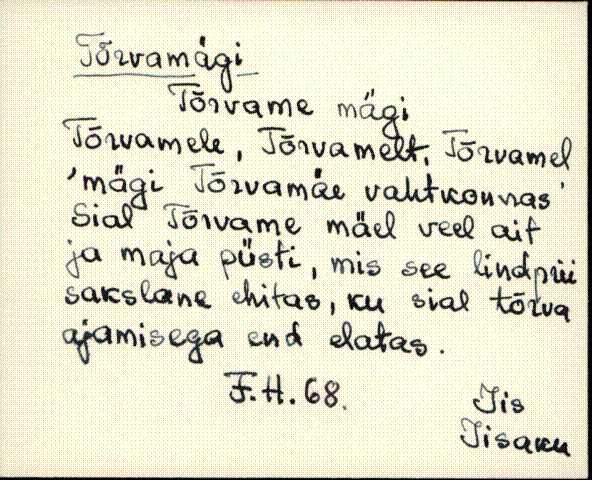 Tõrvamägi
Tõrvame mägi
Tõrvamele, Tõrvamelt, Tõrvamel
'mägi Tõrvamäe vahtkonnas'
Sial Tõrvame mäel veel ait
ja maja püsti, mis see lindprii
sakslane ehitas, ku sial tõrva
ajamisega end elatas.
F.H. 68.
Iis
Iisaku